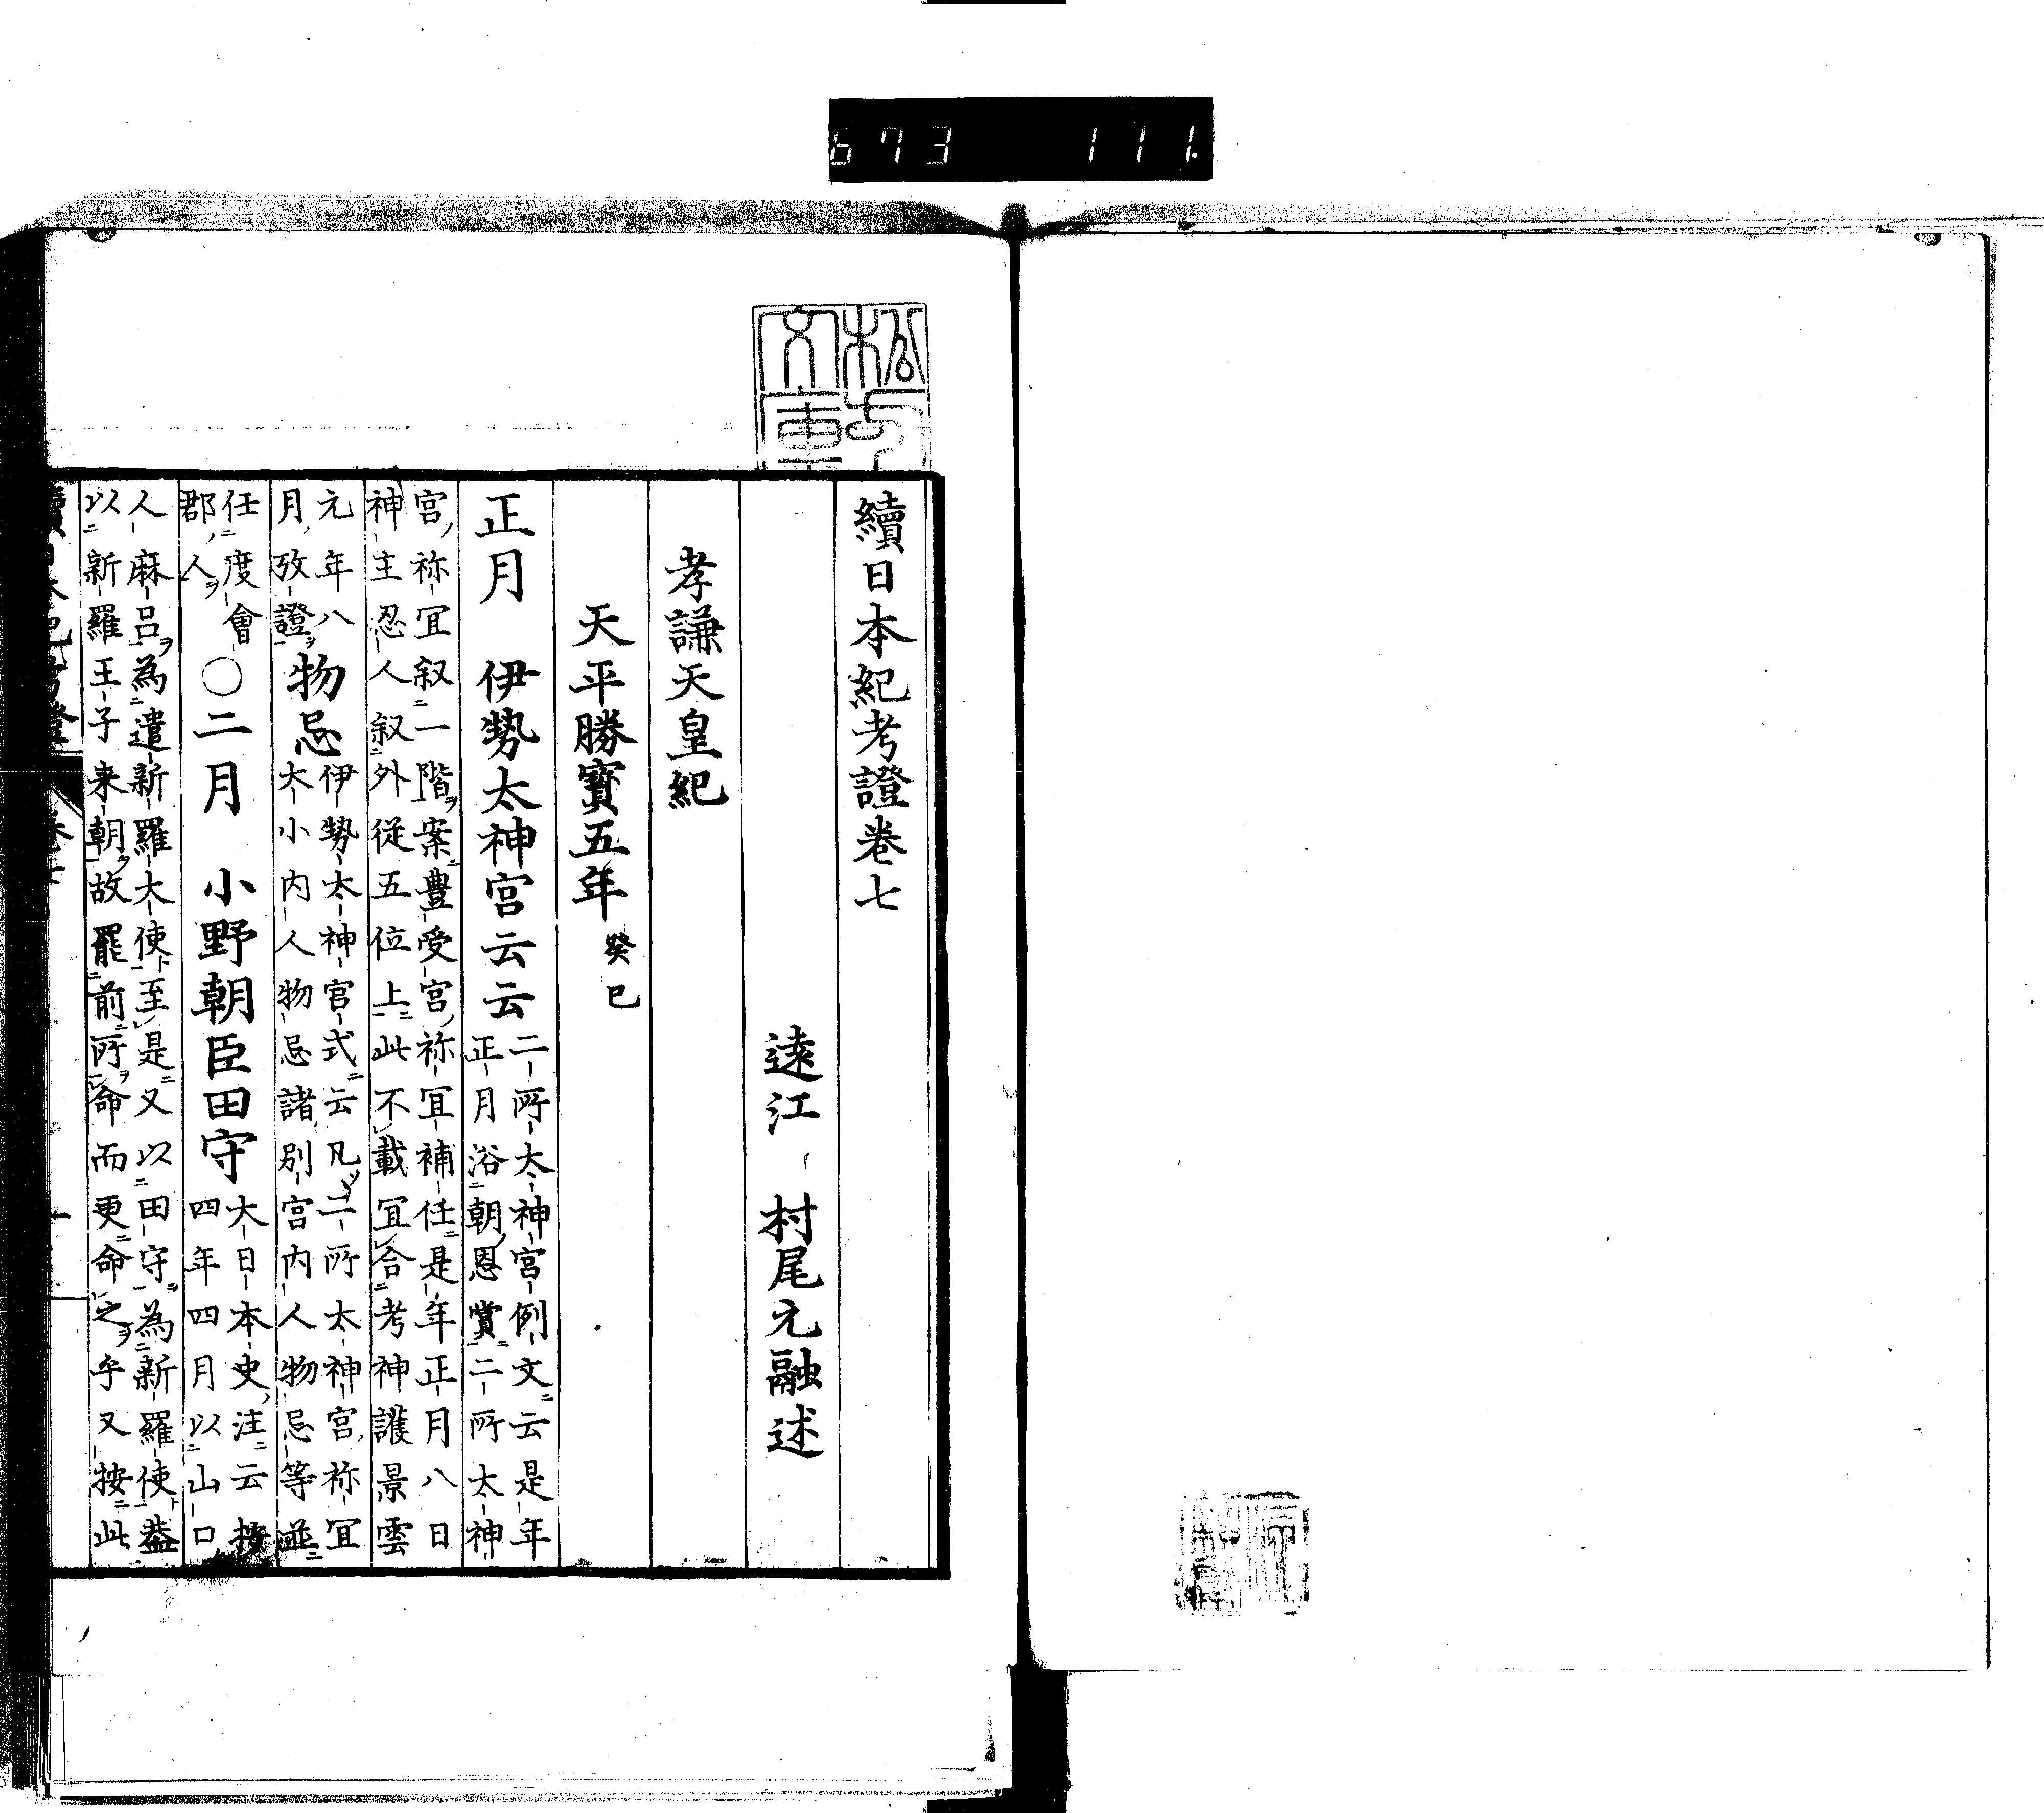 673 111.
松方文庫
續日本紀考證卷七
遠江 村尾元融述
孝謙天皇紀
天平勝寶五年 癸巳
正月 伊勢太神宮云云 二所太神宮例文云是年
正月浴朝恩賞二所太神
宮祢冝叙一階案豊受宮祢冝補任是年正月八日
神主忍人叙外從五位上此不載冝合考神護景雲
元年八
月攷證 物忌 伊勢太神宮式云凡二所太神宮祢冝
大小内人物忌諸別宮内人物忌等並
任度會
郡人 〇二月 小野朝臣田守 大日本史注云按
四年四月以山口
人麻呂為遣新羅大使至是又以田守為新羅使葢
以新羅王子来朝故罷前所命而更命之乎又按此
續日本紀考證 卷七 一